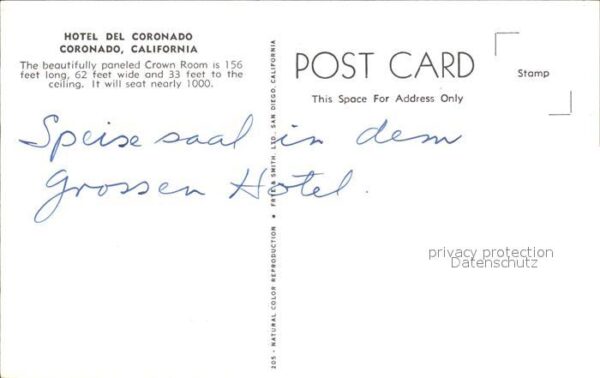 HOTEL DEL CORONADO
CORONADO, CALIFORNIA
The beautifully paneled Crown Room is 156
feet long, 62 feet wide and 33 feet to the
ceiling. It will seat nearly 1000.
Speise saal in dem
Grossen Hotel.
205 - NATURAL COLOR REPRODUCTION ★ FRYE & SMITH, LTD., SAN DIEGO, CALIFORNIA
POST CARD
This Space For Address Only
Stamp
privacy protection
Datenschutz